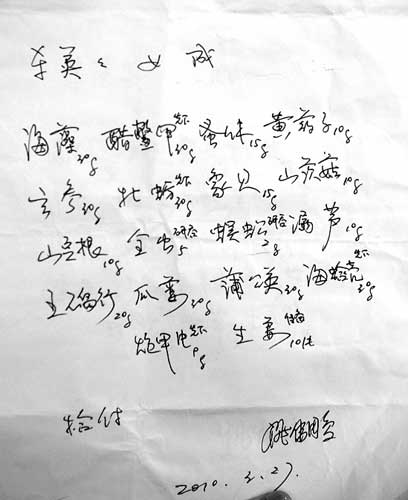 英 女 成
海藻30g 醋鳖甲先下30g 蚤休15g 黄药子10g
玄参30g 牡蛎先下30g 象贝15g 山茨菇10g
山豆根10g 全虫研吞5 蜈蚣研吞2g 漏芦10g
王不留行20g 瓜蒌30g 蒲公英30g 海蛤壳先下30g
炮甲片先下9g 生姜10片
拾付
2010. 2. 27.